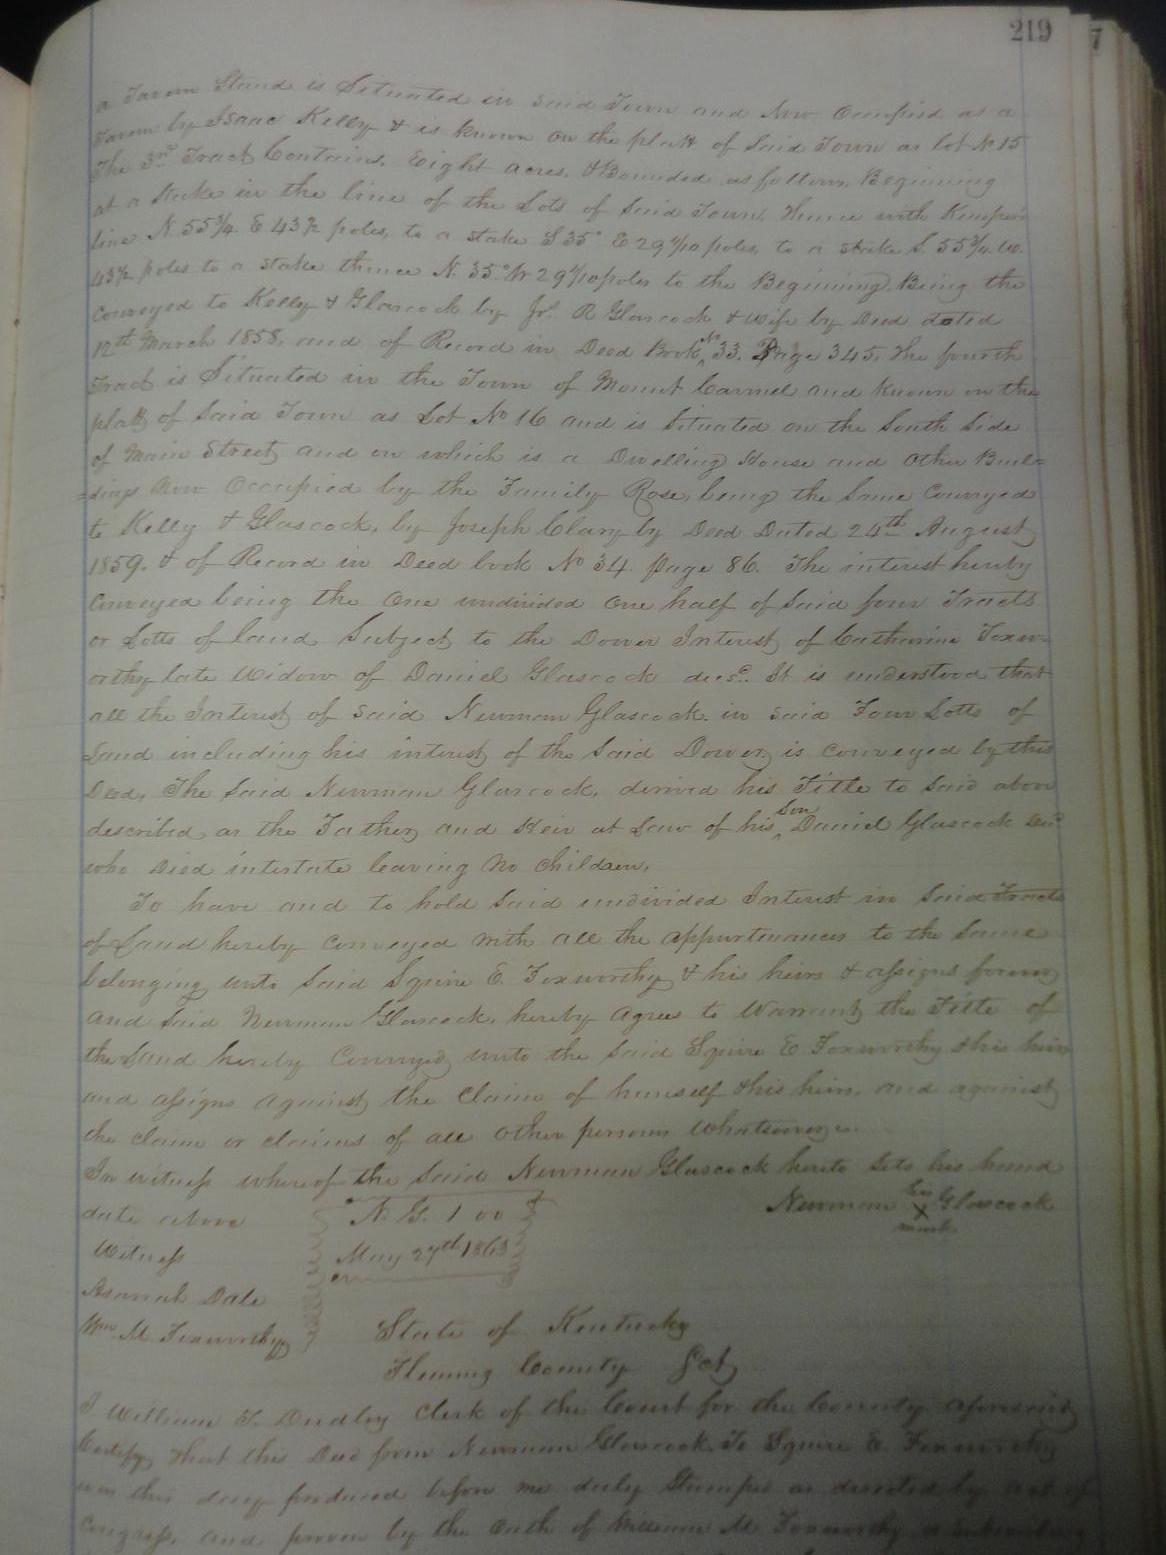 219
7
a Tavern Stand is Situated in Said Town and Now Occupied as a
Tavern by Isaac Kelly & is known on the platt of Said Town as lot No 15
The 3rd Tract Contains, Eight acres, & Bounded as follows, Beginning
at a Stake in the line of the Lots of Said Town, thence with Kemper's
line N. 55 3/4 E 43 1/2 poles, to a stake S 35° E 29 4/10 poles, to a stake S. 55 3/4 W.
43 1/2 poles to a stake thence N. 35° W 29 4/10 poles to the Beginning. Being the
conveyed to Kelly & Glascock by Jno. R Glascock & wife by Deed dated
12th March 1858, and of Record in Deed Book, No 33. Page 345, The fourth
Tract is Situated in the Town of Mount Carmel and known on the
platt of Said Town as Lot No 16 and is Situated on the South Side
of Main Street and on which is a Dwelling House and other Buil=
=dings Now Occupied by the Family Rose, being the Same Conveyed
to Kelly & Glascock, by Joseph Clary by Deed Dated 24th August
1859. & of Record in Deed book No 34 page 86. The interest hereby
Conveyed being the One undivided one half of Said four Tracts
or Lotts of land Subject to the Dower Interest of Catharine Foxw=
orthy late Widow of Daniel Glascock decsd. It is understood that
all the Interest of Said Newman Glascock. in Said Four Lotts of
Land including his interest of the Said Dower, is conveyed by this
Deed, The Said Newman Glascock, derived his Title to Said above
described as the Father and Heir at Law of his Son Daniel Glascock Decd
who Died intestate leaving No children.
To have and to hold Said undivided Interest in Said Tracts
of Land hereby conveyed with all the appurtenances to the Same
belonging unto Said Squire E. Foxworthy & his heirs & assigns forever
and Said Newman Glascock, hereby agrees to Warrant the Title of
the Land hereby Conveyed unto the Said Squire E Foxworthy & his heirs
and assigns against the Claim of himself & his heirs, and against
the claim or claims of all other persons whatsoever.
In witness whereof the Said Newman Glascock hereto Sets his hand
date above
N. G. 1 00
May 27th 1863
Newman his X mark Glascock
Witness
Dale
Wm. M Foxworthy
State of Kentucky
Fleming County Sct
I William T. Dudley Clerk of the Court for the County aforesaid
Certify that this Deed from Newman Glascock To Squire E. Foxworthy
was this day produced before me duly Stamped as directed by act of
Congress, and proven by the Oath of William M Foxworthy a Subscribing